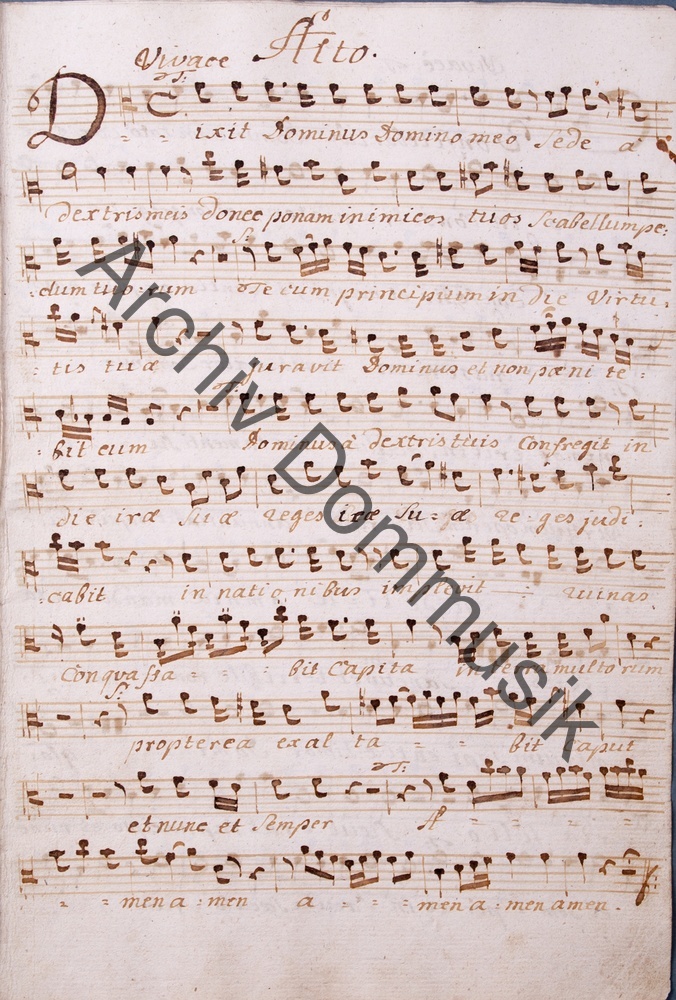 Alto.
Vivace
T:
Dixit Dominus Domino meo sede a
dextris meis donec ponam inimicos tuos scabellum pe:
dum tuo:rum Te cum principium in die Virtu:
S:
:tis tuæ Juravit Dominus et non pæni te:
T:
:bit eum Dominus à dextris tuis Confregit in
die iræ suæ reges iræ su:æ re:ges judi:
:cabit in nationibus implevit ruinas
Conquassa:::bit Capita in terra multorum
S:
propterea exalta::bit Caput
T:
et nunc et semper A = = = =
= = men a:men a::men a:men amen.
Archiv Dommusik